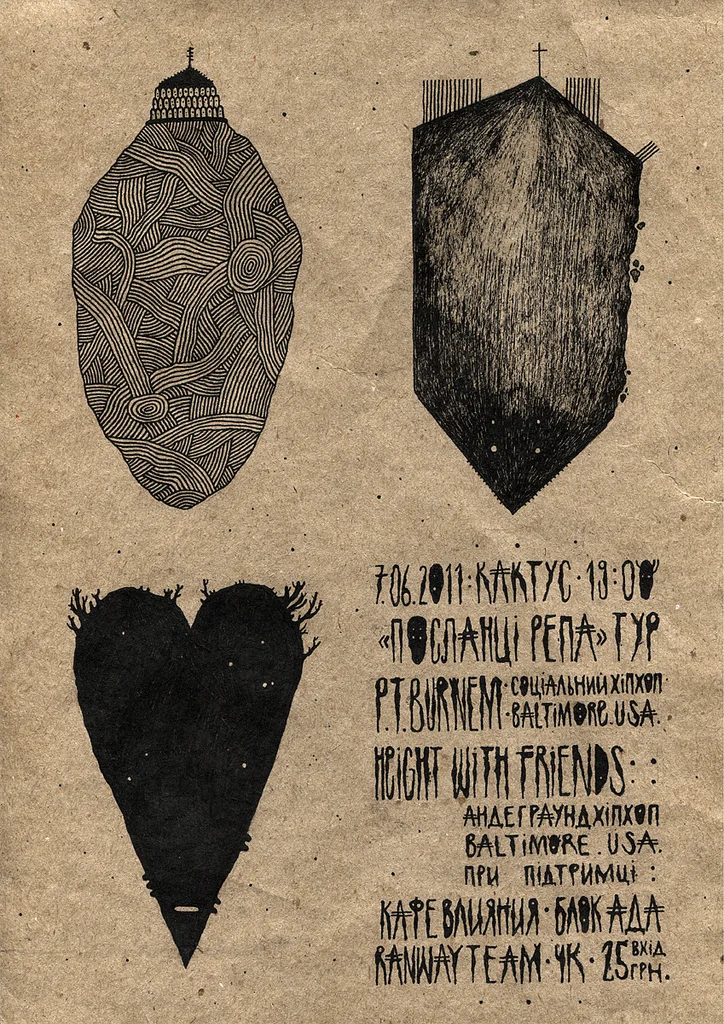 7.06.2011:КАКТУС·19:00
«ПОСЛАНЦІ РЕПА» ТУР
P.T.BURNEM·СОЦІАЛЬНИЙ ХІПХОП
·BALTIMORE.USA.
HEIGHT WITH FRIENDS::
АНДЕГРАУНД ХІПХОП
BALTIMORE.USA.
ПРИ ПІДТРИМЦІ:
КАФЕ ВЛИЯНИЯ·БЛОК АДА
RANWAY TEAM·ЧК·25 ВХІД
ГРН.